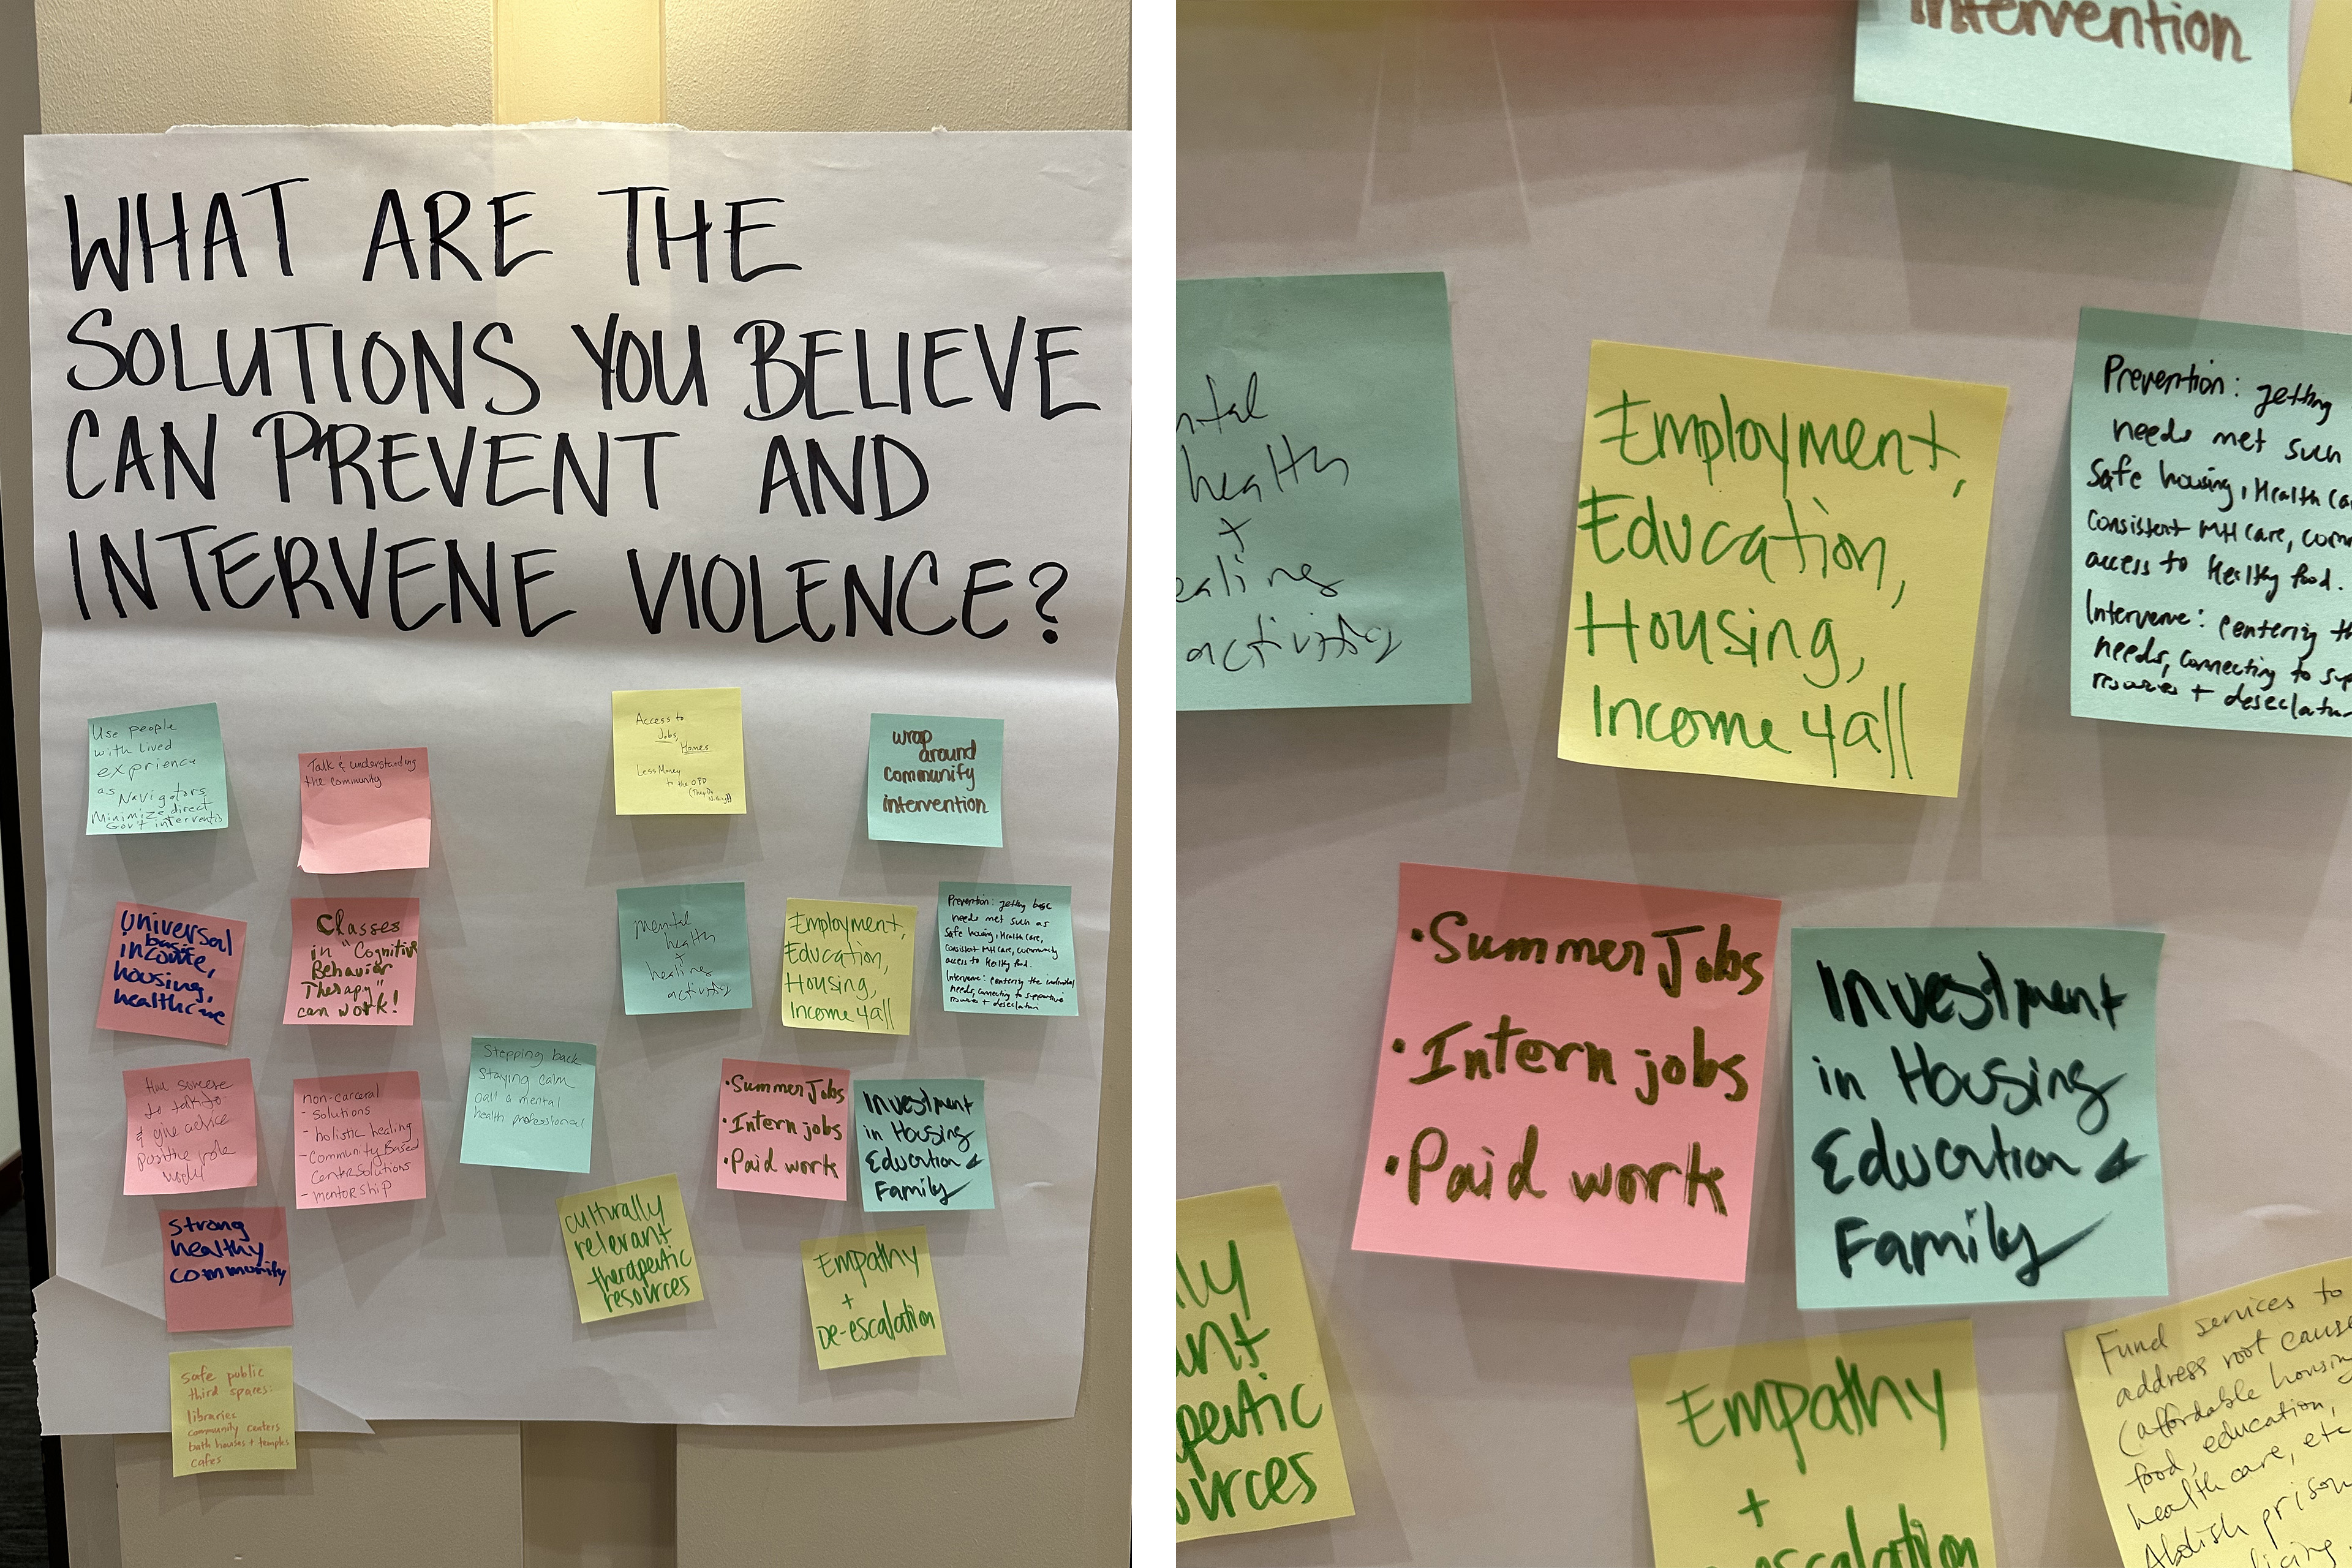 WHAT ARE THE
SOLUTIONS YOU BELIEVE
CAN PREVENT AND
INTERVENE VIOLENCE?
Use people
with lived
exprience
as Navigators
Minimize direct
Gov't interventio
Talk & understanding
the community
Access to
Jobs,
Homes
Less Money
to the OPD
(They Do
wrap
around
community
intervention
Universal
basic
income,
housing,
healthcare
Classes
in "Cognitive
Behavior
Therapy"
can work!
mental
health
+
healing
activity
Employment,
Education,
Housing,
Income 4all
Prevention: getting basic
needs met such as
Safe housing, Health Care,
Consistent MH Care, community
access to Healthy food.
Intervene: centering the individual
needs, connecting to supportive
resources + deseclation
to talk to
& give advice
positive role
non-carceral
- Solutions
- holistic healing
- Community Based
Center Solutions
- mentorship
Stepping back
Staying calm
call a mental
health professional
• Summer Jobs
• Intern jobs
• Paid work
Investment
in Housing
Education &
Family
Strong
healthy
community
culturally
relevant
therapeutic
resources
Empathy
+
De-escalation
safe public
third spaces:
libraries
community centers
bath houses + temples
cafes
intervention
ntal
health
+
ealing
activity
Employment,
Education,
Housing,
Income 4all
Prevention: getting
needs met such
Safe housing, Health Ca
Consistent MH Care, com
access to Healthy food.
Intervene: centering th
needs, connecting to sup
resources + deseclation
• Summer Jobs
• Intern jobs
• Paid work
Investment
in Housing
Education &
Family
lly
ant
peutic
ources
Empathy
+
escalation
Fund services to
address root cause
(affordable housing
food, education,
health care, etc
Abolish prison
licing